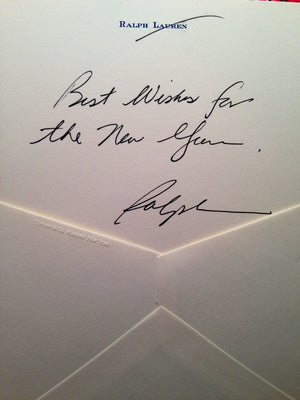 RALPH LAUREN
Best Wishes for
the New Year.
Ralph